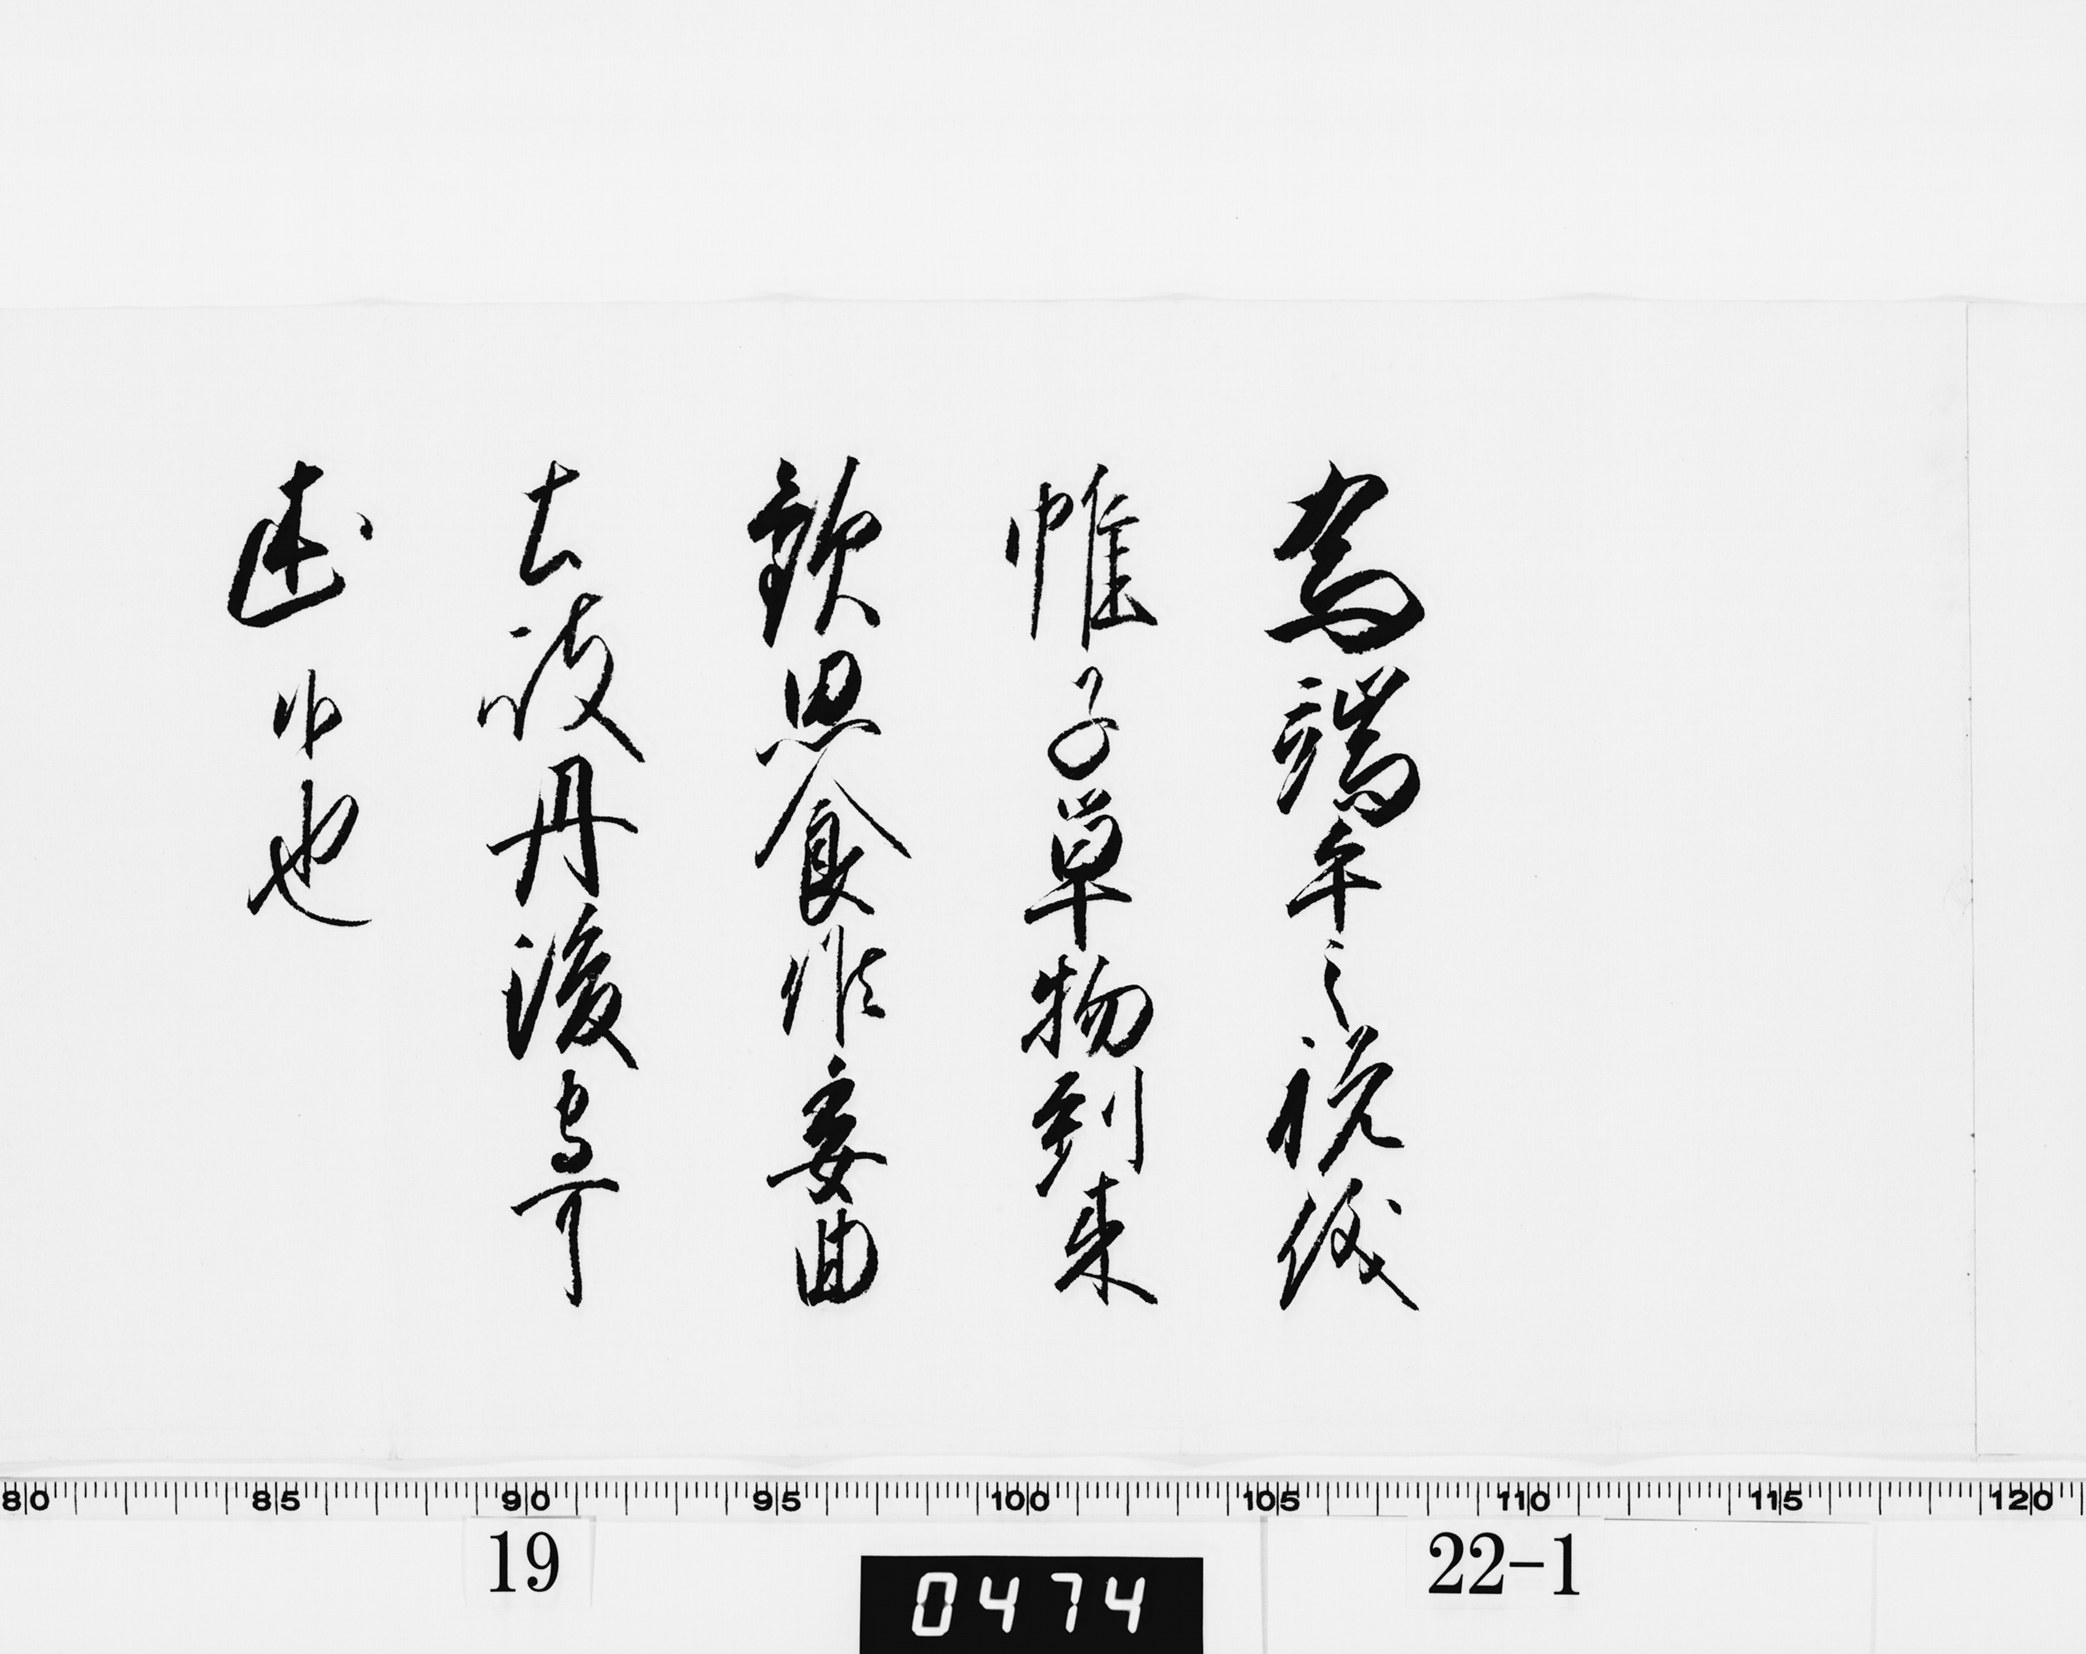 為端午之祝儀
帷子単物到来
歓思食候委曲
土岐丹後守可
述候也
80 85 90 95 100 105 110 115 120
19
0474
22-1